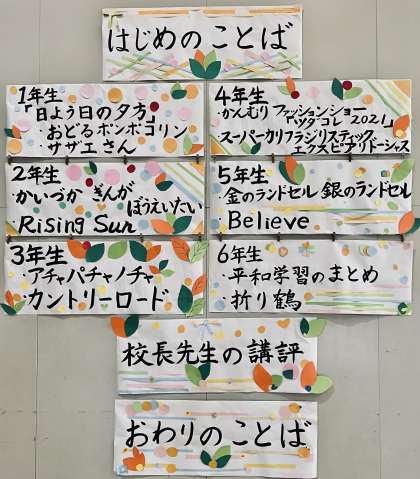 はじめのことば
1年生
「日よう日の夕方」
・おどるポンポコリン
サザエさん
2年生
・かいづか ぎんが
ぼうえいたい
・Rising Sun
3年生
・アチャパチャノチャ
・カントリーロード
4年生
・かんむり ファッションショー
「ハツタコレ2021」
・スーパーカリフラジリスティック
エクスピアリドーシャス
5年生
・金のランドセル 銀のランドセル
・Believe
6年生
・平和学習のまとめ
・折り鶴
校長先生の講評
おわりのことば